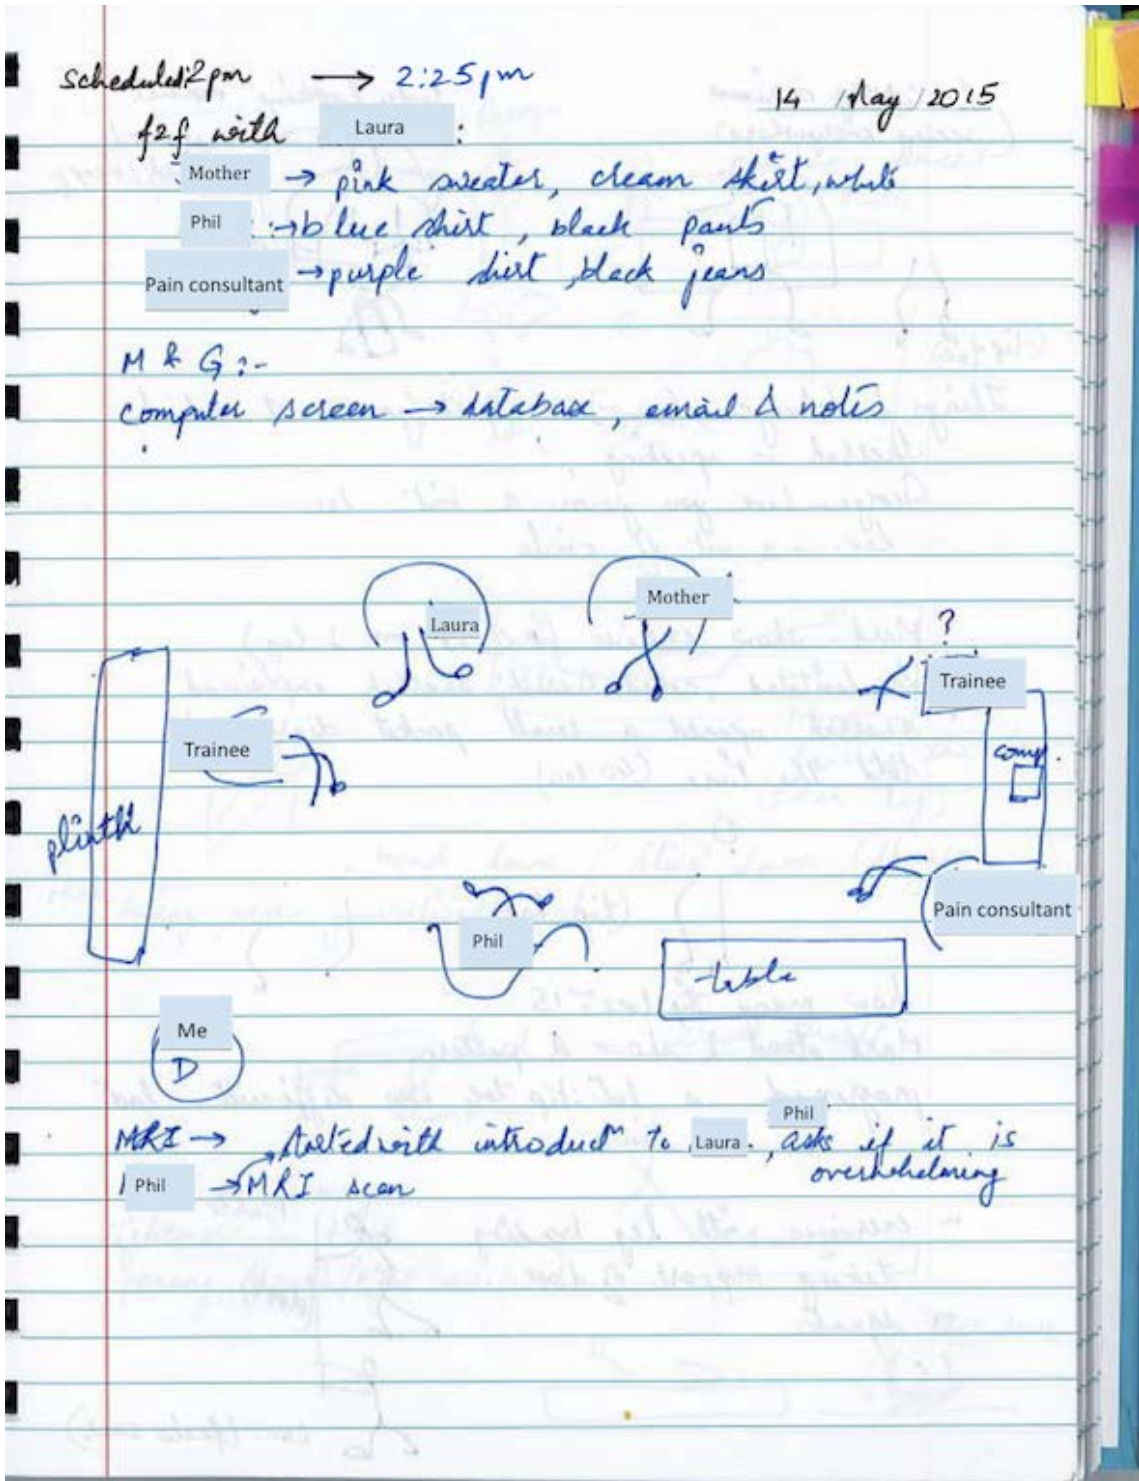 scheduled:2pm → 2:25pm
14 May 2015
f2f with Laura :
Mother → pink sweater, cream skirt, white
Phil :→ blue shirt, black pants
Pain consultant → purple shirt, black jeans
M & G :-
computer screen → database, email & notes
Laura
Mother
?
Trainee
Trainee
comp
plinth
Pain consultant
Phil
table
Me
D
Phil
MRI → started with introductn to Laura, asks if it is
overwhelming
Phil → MRI scan